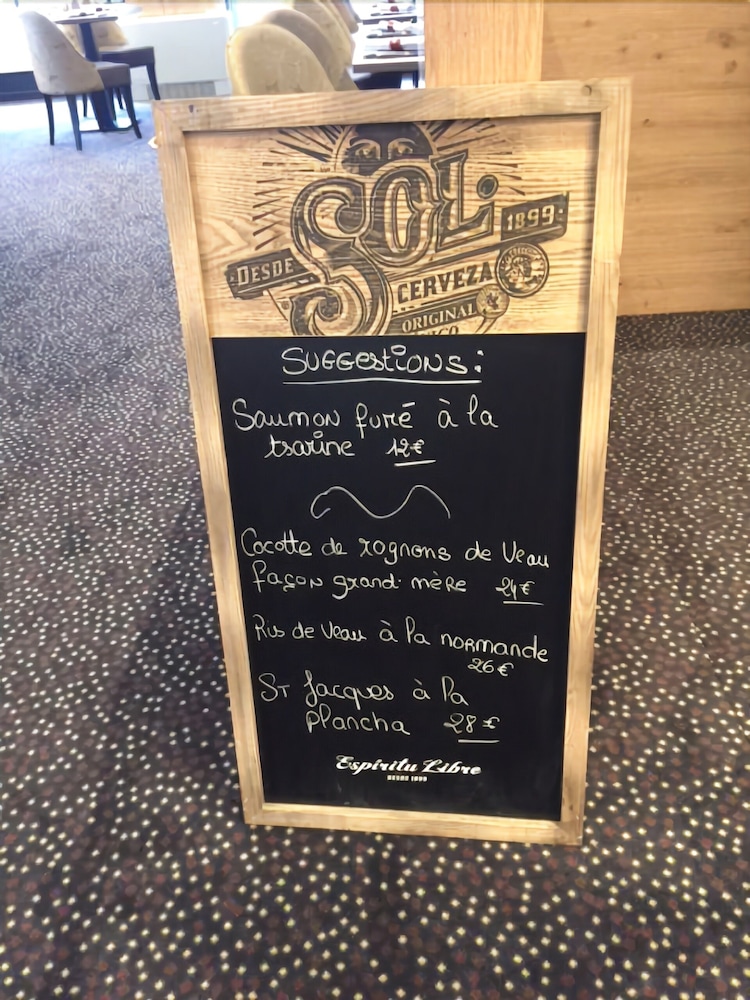 SOL.
DESDE
1899.
CERVEZA
ORIGINAL
SUGGESTIONS:
Saumon fumé à la
tsarine 12€
Cocotte de rognons de Veau
façon grand-mère 24€
Ris de Veau à la normande
26€
St Jacques à la
plancha 28€
Espíritu Libre
DESDE 1899